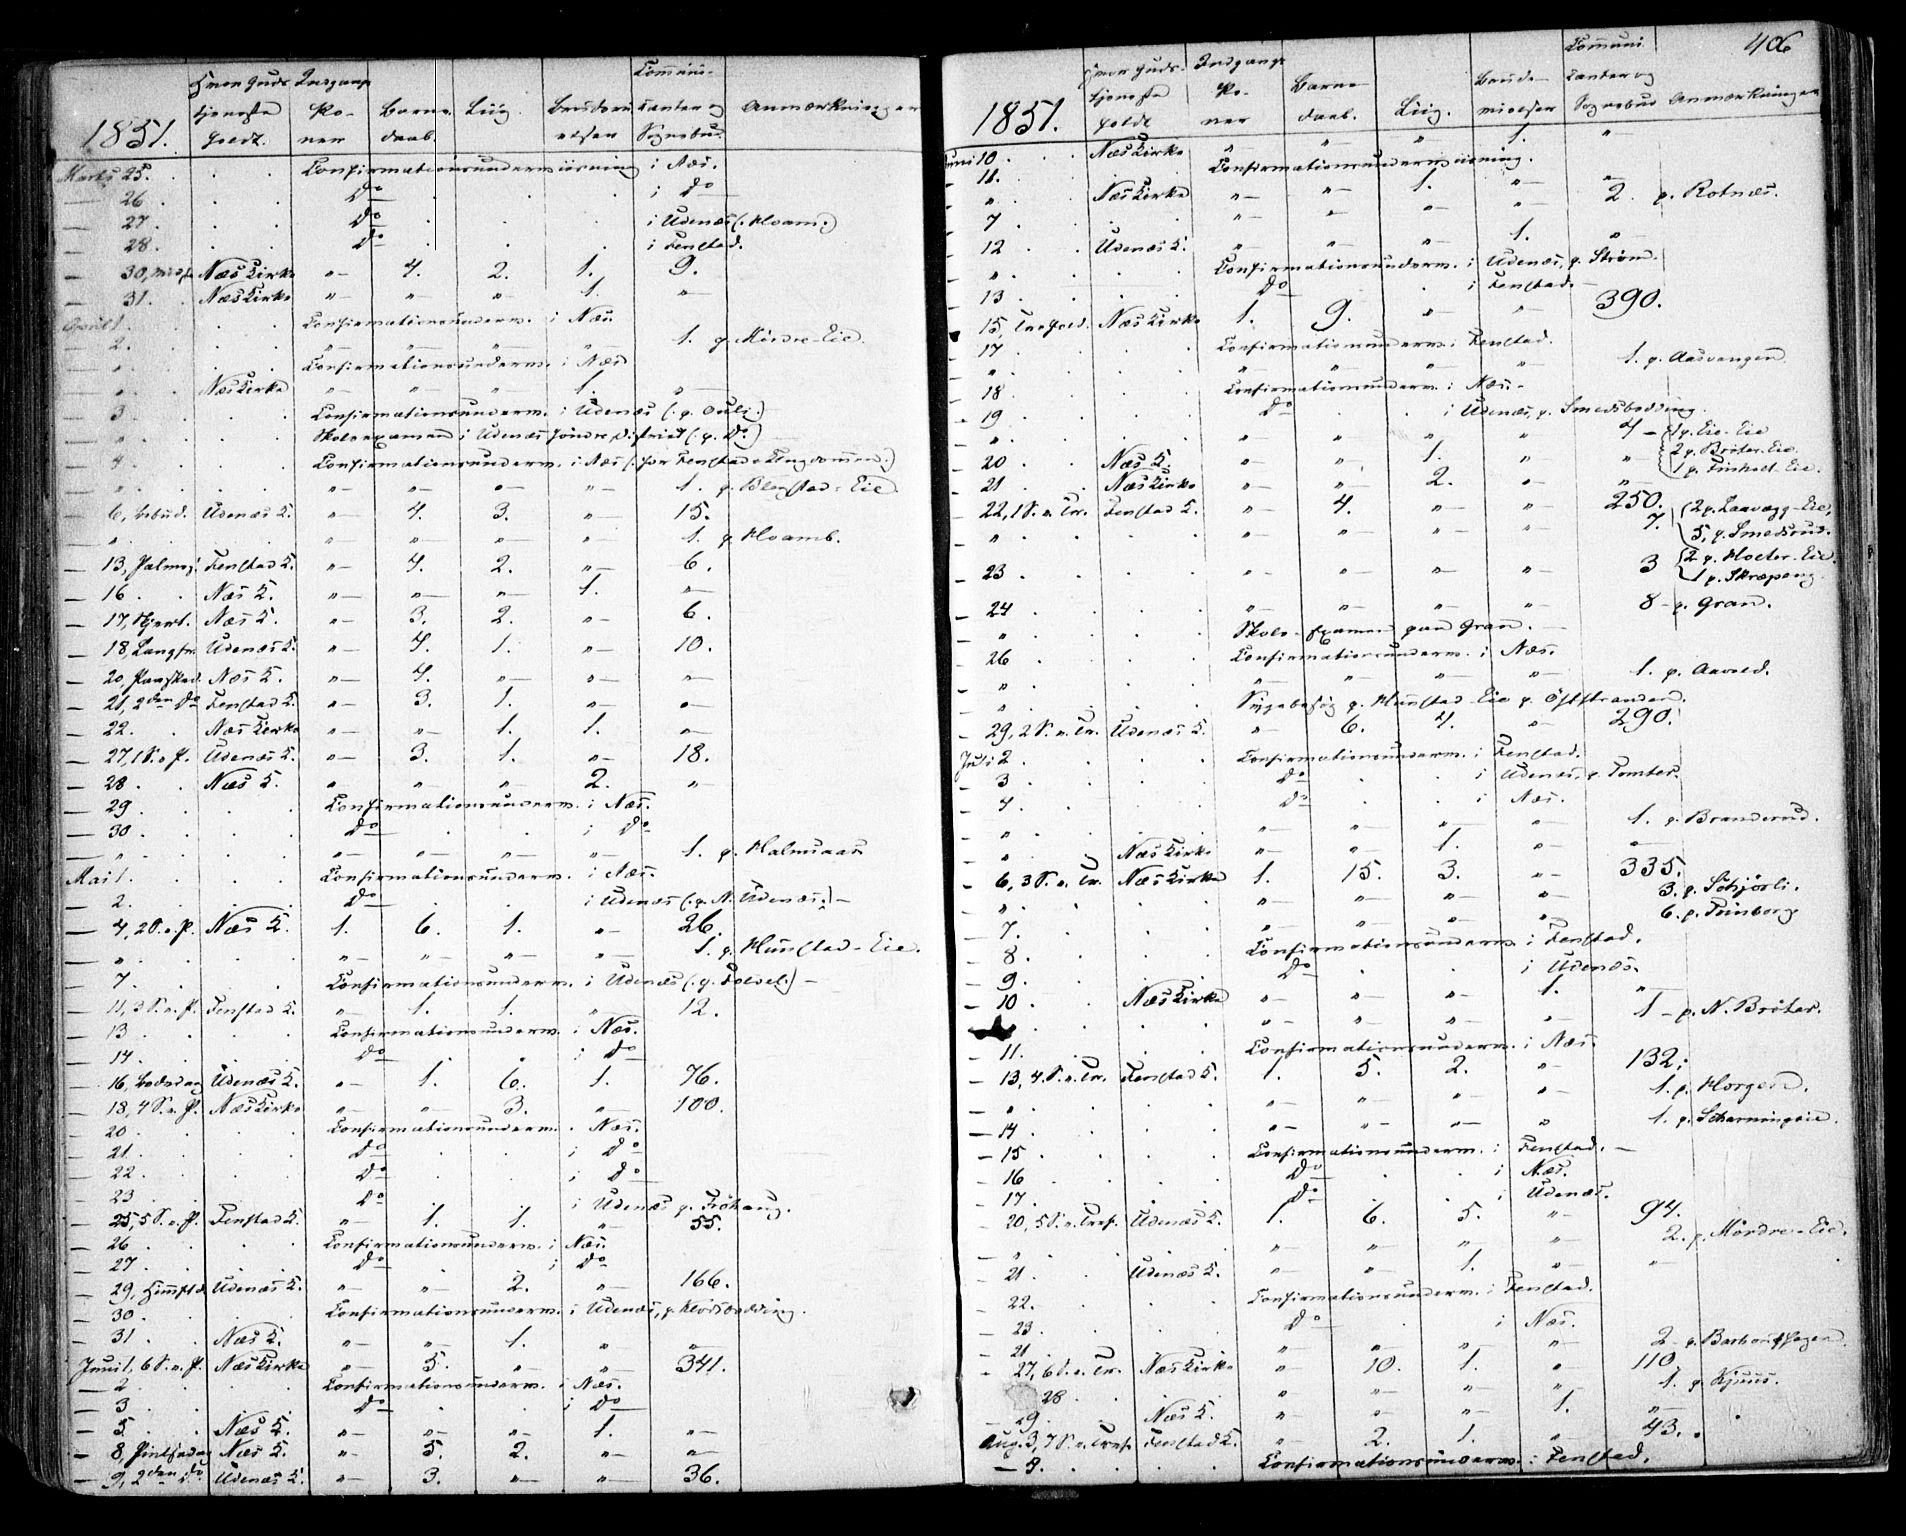 1851.
Hvor Guds-
tjeneste
holdt.
Indgangs
Ko-
ner
Barne
daab.
Liig.
Brudevi
elser
Communi-
canter og
Sognebud
Anmærkninger
Marts 25. Confirmationsundervisning i Næs.
— 26. Do i Do
— 27. Do i Udenæs (: Hvam :)
— 28. Do i Fenstad.
— 30, Næs Kirke „— 4. 2. 1. 9.
— 31. Næs Kirke „— „— „— 1. „—
April 1. Confirmationsunderv. i Næs.
— 2. „— „— „— „— 1. p. Mördre-Eie.
— „. Confirmationsunderv. i Næs
— „. Næs Kirke „— „— „ 1. „—
— 3. Confirmationsunderv. i Udenæs (: p. Ouli :)
— „. Skoleexamen i Udenæs söndre District (: p. Do :)
— 4. Confirmationsunderv. i Næs (: for Fenstad :)
— „. „— „— „— „— 1. p. Blegstad-Eie.
— 6, Udenæs K. „— 4. 3. „— 15.
— „. „— „— „— „— 1. p. Hvamb.
— 13, Palmes. Fenstad K. „— 4. 2. „— 6.
— 16. Næs K. „— „— „— 1. „—
— 17, Skjert. Næs K. „— 3. 2. „— 6.
— 18, Langfr. Udenæs K. „— 4. 1. „— 10.
— 20, Paasked. Næs K. „— 4. „— „— „—
— 21, 2den Do Fenstad K. „— 3. 1. „— „—
— 22. Næs Kirke „— „— 1. 1. „—
— 27, 1 S. e. P. Udenæs K. „— 3. 1. „— 18.
— 28. Næs K. „ „— „ 2. „—
— 29. Confirmationsunderv. i Næs.
— 30. Do i Do
— „. „— „— „— „— 1. p. Halmsaas
Mai 1. Confirmationsunderv. i Næs.
— 2. Do i Udenæs (: p. N. Udenæs :) —
— 4, 2 S. e. P. Næs K. 1. 6. 1. „— 26.
— „. „— „— „— „— 1. p. Hunstad-Eie.
— 7. Confirmationsunderv. i Udenæs (: p. :) —
— 11, 3 S. e. P. Fenstad K. „— 1. 1. „ 12.
— 13. Confirmationsunderv. i Næs.
— 14. Do i Do
— 16, Bededag Udenæs K. „— 1. 6. 1. 76.
— 18, 4 S. e. P. Næs Kirke „— „— 3. „— 100.
— 20. Confirmationsunderv. Næs.
— 21. Do i Do
— 22. Do i Do
— 23 Do i Udenæs p. Fröhaug.
— 25, 5 S. e. P. Fenstad K. „— 1. 1. „— 55.
— 26. Confirmationsunderv. i Næs.
— 27. Do i Do
— 29, Himfd. Udenæs K. „— „ 2. „— 166.
— 30. Confirmationsunderv. i Udenæs, p. Klodsbødding.
— 31. Næs K. „— „— 1. „ „
Juni 1, 6 S. e. P. Næs Kirke „— 5. „— „— 341.
— 2. Confirmationsunderv. i Næs.
— 3. Do i Do
— 5. Næs K. „— „ „— 1. „—
— 8, Pintsedag Næs K. „— 5. 2. „— „—
— 9, 2den Do Udenæs K. „— 3. „— „— 36.
406
1851.
Hvor Guds-
tjeneste
holdt
Indgangs
Ko-
ner
Barne
daab.
Liig.
Brude-
vielser
Communi
canter og
Sognebud
Anmærkninger
Juni 10. Næs Kirke „— „— „ 1. „—
— 11. Confirmationsundervisning.
— „. Næs Kirke „— „— 1. „— „—
— 7. „— „— „— „— 2. p. Rotnæs.
— 12 Udenæs K. „— „— „— 1. „—
— „. Confirmationsunderv. i Udenæs, p. Ström.
— 13 Do i Fenstad —
— 15, Trefold. Næs Kirke 1. 9. „— „— 390.
— 17 Confirmationsunderv. i Fenstad.
— „. „— „— „— „ 1. p. Aasvangen
— 18 Confirmationsunderv. i Næs. —
— 19. Do i Udenæs, p. Smedsbødding.
— „. „— „— „ „ 4 — { 1 p. Eie-Eie
— 20 Næs K. „— „— 1. „ „— 2 p. Bröter-Eie.
— 21 Næs Kirke „— „— 2. „— „ 1 p. Eie.
— 22, 1 S. e. Tr. Fenstad K. „— 4. „— „— 250.
— „. „— „— „— „— 7. { 2 p. Eie, 5, p. Smedsrud.
— 23 „— „— „— „— 3 { 2 p. Holter-Eie 1 p. Skræpeng.
— 24 „— „— „— „— 8 — p. Gran.
— „. Skole-Examen paa Gran. —
— 26 Confirmationsunderv. i Næs.
— „. „— „— „— „— 1. p. Aarold.
— „. Sygebesög p. Hunstad-Eie p. Öststranden.
— 29, 2 S. e. Tr. Udenæs K. „— 6. 4. „— 290.
Juli 2 Confirmationsunderv. i Fenstad.
— 3 Do i Udenæs, p. Tomter.
— 4. Do i Næs.
— „. „— „— „— „— 1. p. Branderud.
— „. Næs Kirke „— „— 1. „— „—
— 6, 3 S. e. Tr. Næs Kirke 1. 15. 3. „— 335.
— „. „— „— „— „— 3. p. Skjörli.
— 7. „— „— „— „— 6. p.
— 8. Confirmationsunderv. i Fenstad.
— 9. Do i Udenæs.
— 10 Næs Kirke „— „— „— 1. „—
„— „— „— „— 1 — p. N. Bröter.
— 11. Confirmationsunderv. i Næs.
— 13, 4. S. e. Tr. Fenstad K. 1. 5. 2. „— 132.
— „. „— „— „— „— 1. p. Horgen.
— 14 „— „— „— „ 1. p.
— 15 Confirmationsunderv. i Fenstad. —
— 16 Do i Næs.
— 17. Do i Udenæs.
— 20, 5 S. e. Tref. Udenæs K. 1. 6. 5. „— 94.
— „. „— „— „— „— 2. p. Mördre-Eie.
— 21 Udenæs K. „— „— 1. „— „—
— 22. Confirmationsunderv. i Fenstad.
— 23. Do i Næs.
— 21 „— „— „— „— 2 p.
— 27, 6 S. e. Tr. Næs Kirke „— 10. 1. „— 110
28 „— „— „— „— 1. p. Kjuus.
— 29 Næs K. „— „— „— 1. „—
Aug. 3, 7 S. e. Tref. Fenstad K. „— 2. 1. „— 43.
— 9. Confirmationsunderv. i Fenstad.